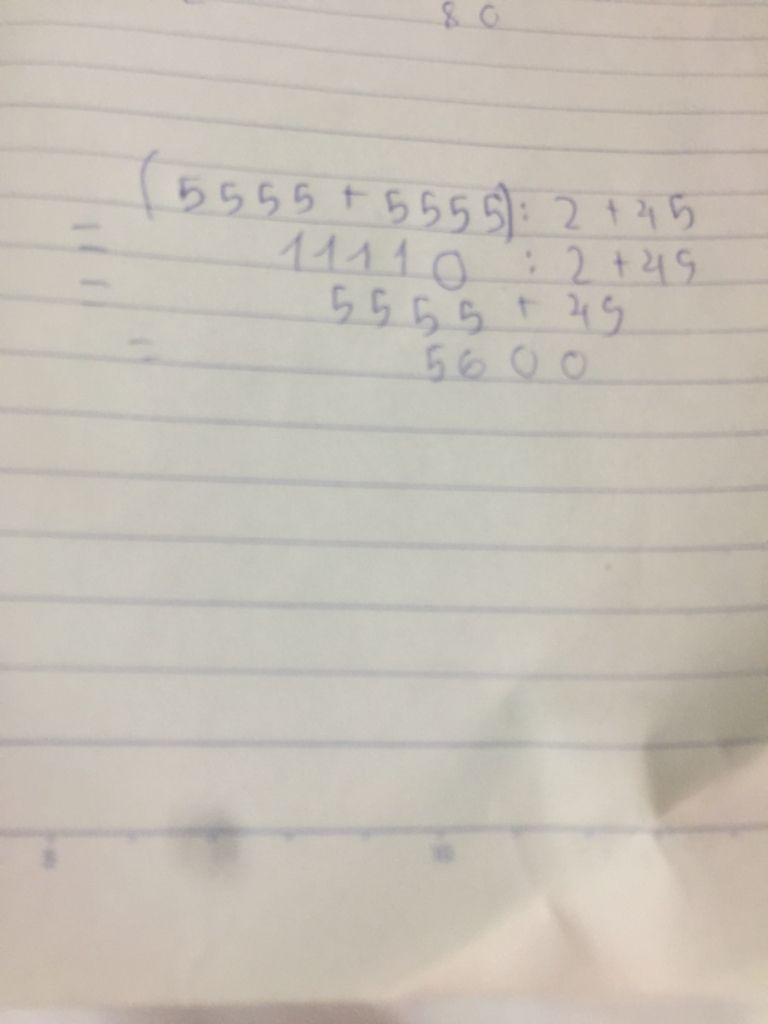 80
(5555 + 5555) : 2 + 45
= 11110 : 2 + 45
= 5555 + 45
= 5600
5 10